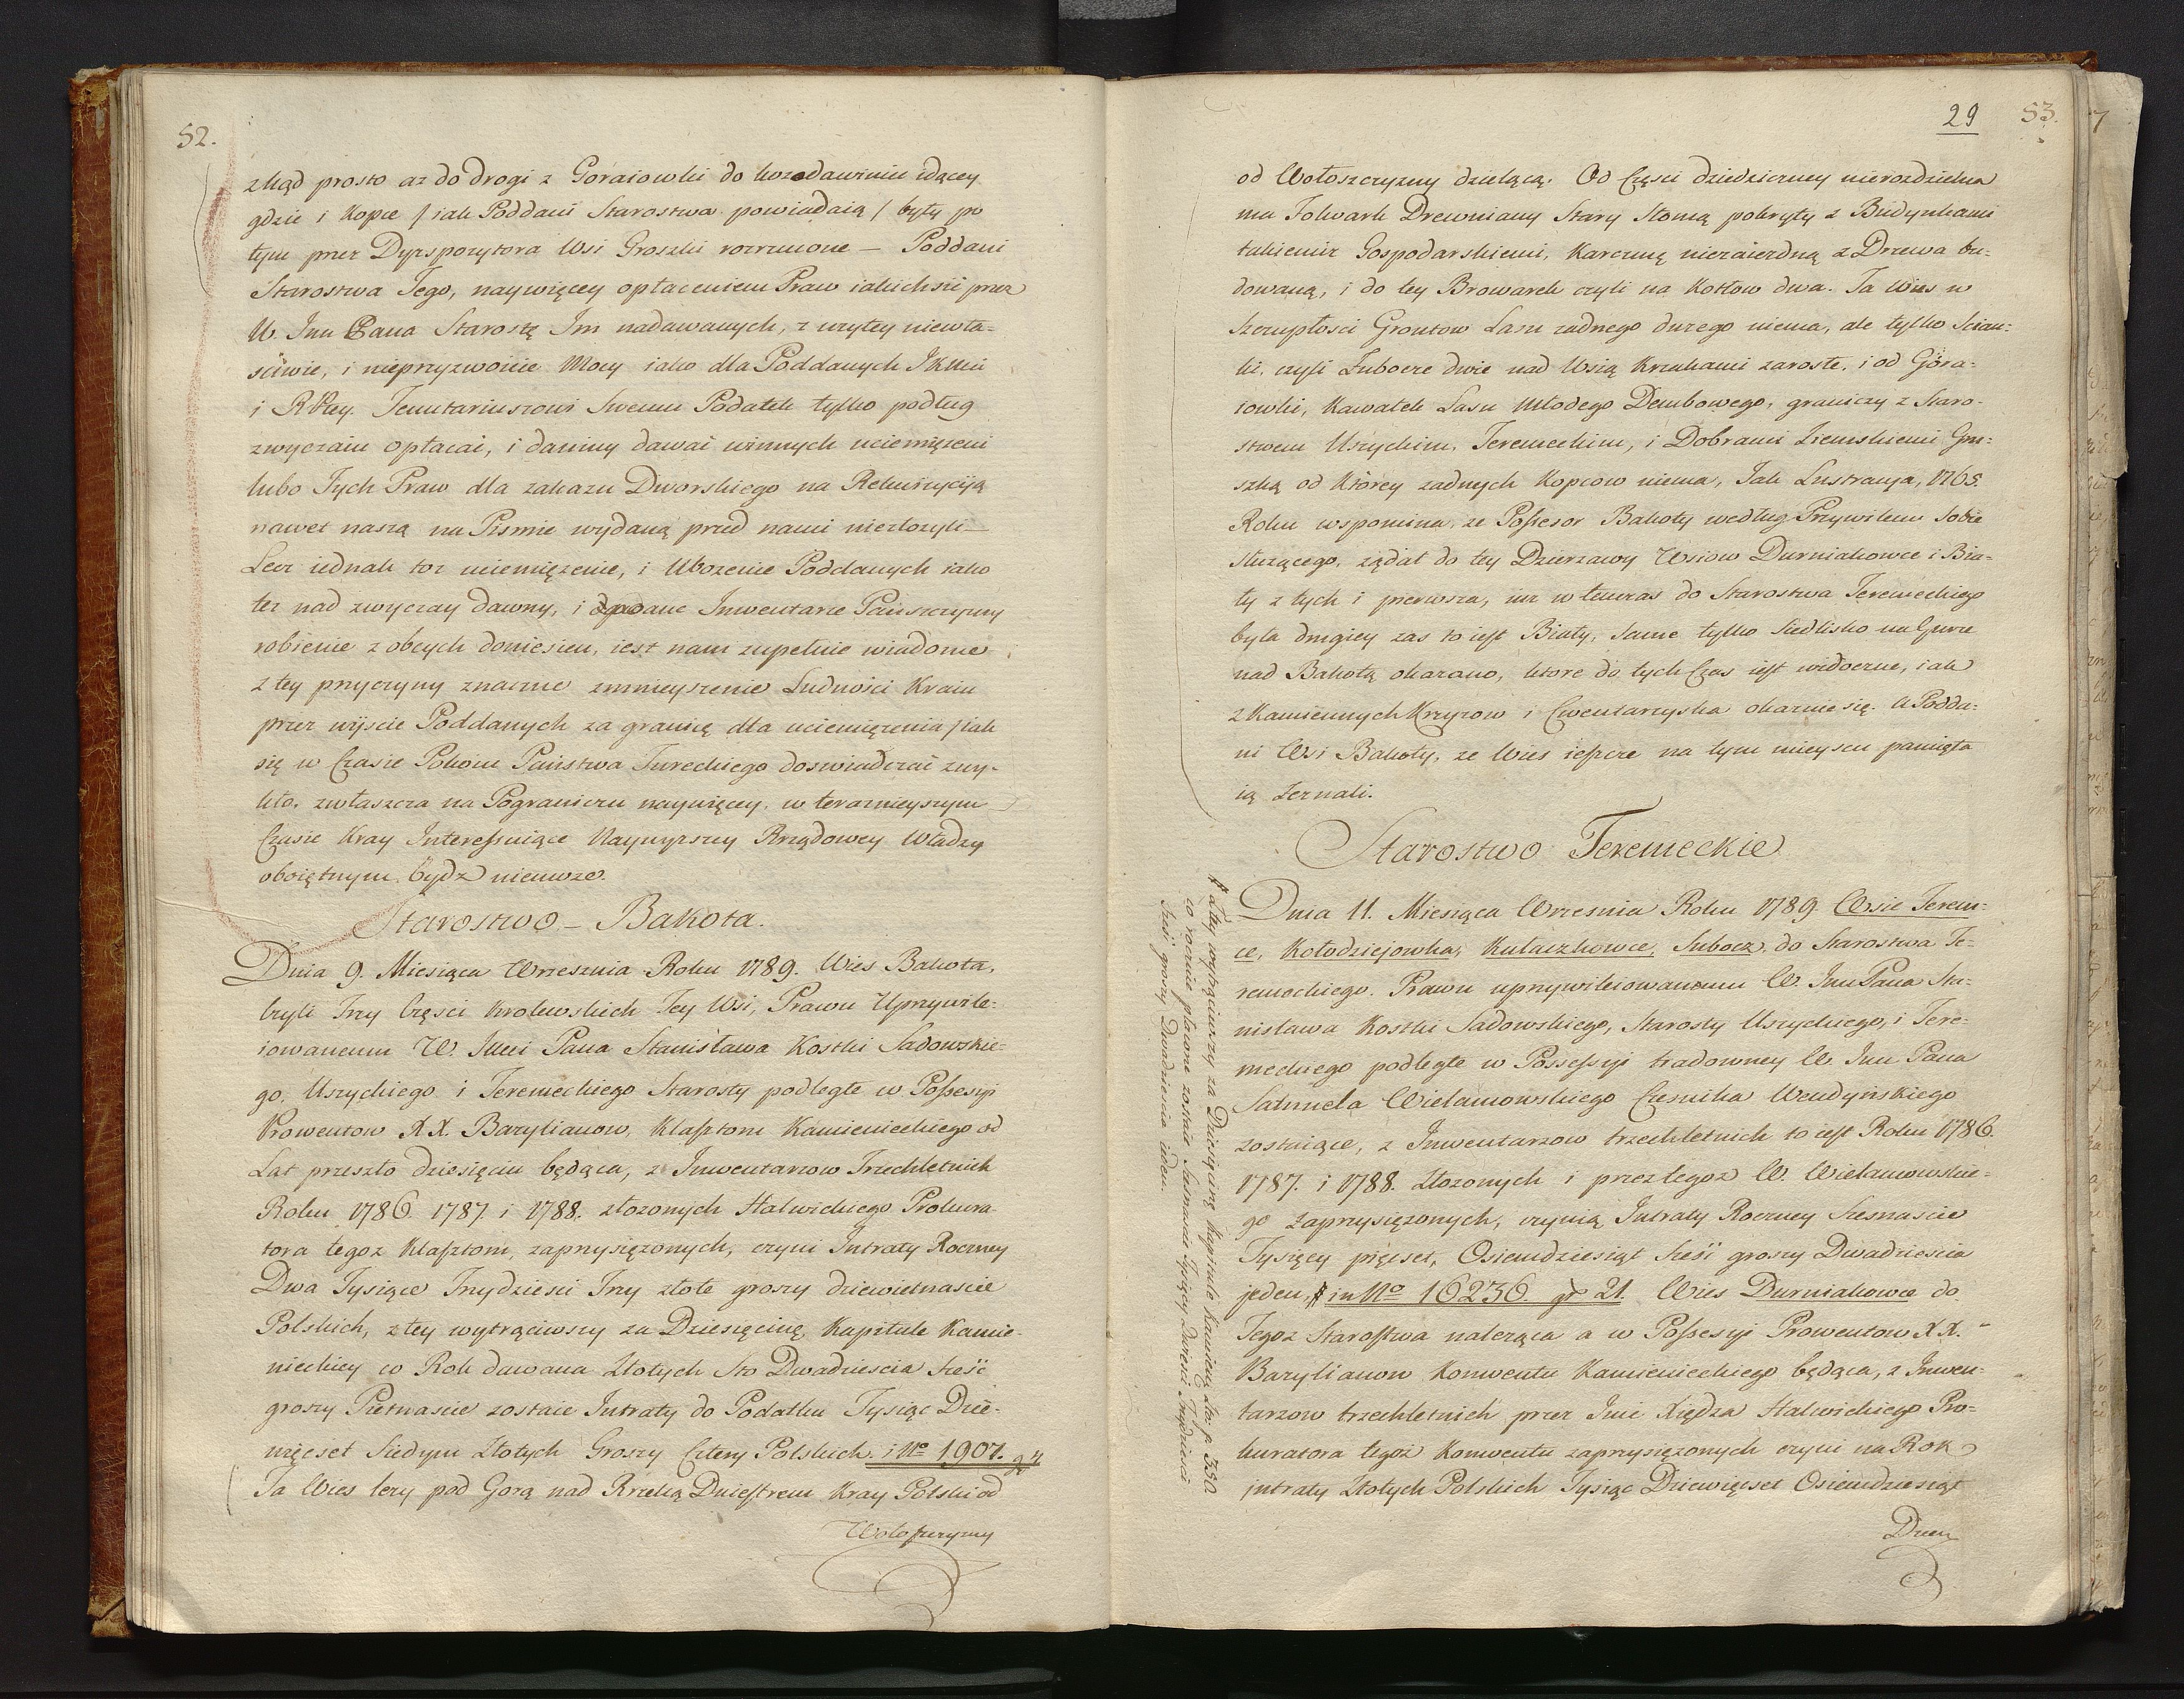 52.
zkąd prosto az do drogi z Goraiowki do kozodawiniec idącey
gdzie i Kopce / iak Poddani Starostwa powiadaią / były po
tym przez Dyzspozytora Wsi Groszki rozrzucone — Poddani
Starostwa Tego, naywięcey opłaceniem Praw iakichsii przez
W. Jmc Pana Starostę Im nadawanych, z uzytey niewła-
sciwie, i nieprzyzwoicie Mocy iako dla Poddanych JKMci
i RPtey. Tenutariuszowi Swemu Podatek tylko podług
zwyczaiu opłacać, i daniny dawać winnych uciemięzeni
lubo Tych Praw dla zakazu Dworskiego na Rekwizycyją
nawet naszą na Pismie wydaną przed nami niezłozyli —
Lecz iednak toz uciemięzenie, i Ubozenie Poddanych iako
tez nad zwyczay dawny, i podane Inwentarze Pańszczyzny
robienie z obcych doniesien, iest nam zupełnie wiadome
z tey przyczyny znaczne zmnieyszenie Ludności Kraiu
przez wyiscie Poddanych za granicę dla uciemięzenia / iak
się w Czasie Pokoiu Państwa Tureckiego doswiadczać zwy-
kło, zwłaszcza na Pograniczu naywięcey, w teraznieyszym
Czasie Kray Interessuiące Naywyzszey Rządowey Władzy
oboiętnym bydz niemoze.
Starostwo – Bakota.
Dnia 9. Miesiąca Wrzesznia Roku 1789. Wies Bakota,
czyli Trzy Części Krolewskich Tey Wsi, Prawu Uprzywile-
iowanemu W. Jmci Pana Stanisława Kostki Sadowskie-
go, Uszyckiego i Teremeckiego Starosty podległe w Possesyi
Prowentow XX. Bazylianow, Klasztoru Kamienieckiego od
Lat przeszło dziesięciu będąca, z Inwentarzow Trzechletnich
Roku 1786. 1787. i 1788. złozonych Halwickiego Prokura-
tora tegoz Klasztoru, zaprzysięzonych, czyni Intraty Roczney
Dwa Tysiące Trzydziesci Trzy złote groszy dziewietnascie
Polskich, z tey wytrąciwszy za Dziesięcinę Kapitule Kamie-
nieckiey co Rok dawana Złotych Sto Dwadziescia Sześć
groszy Pietnascie zostaie Intraty do Podatku Tysiąc Dzie-
więcset Siedym Złotych Groszy Cztery Polskich. i No 1907. g 4
Ta Wies lezy pod Gorą nad Rzeką Dniestrem Kray Polski od
Wołoszczyzny
29
53.
od Wołoszczyzny dzielącą. Od Części dziedziczney nierozdzielna
ma Folwark Drewniany Stary Słomą pokryty z Budynkami
takiemiz Gospodarskiemi, Karczmę niezaiezdną z Drzewa bu-
dowaną, i do tey Browarek czyli na Kotłow dwa. Ta Wies w
Szczupłości Grontow Lasu zadnego duzego niema, ale tylko Scian-
ki, czyli Łubocze dwie nad Wsią Krzakami zarosłe, i od Góra-
iowki, Kawałek Lasu Młodego Dembowego, graniczy z Staro-
stwem Uszyckim, Teremeckim, i Dobrami Ziemskiemi Gru-
szką od Ktorey zadnych Kopcow niema, Jak Lustracya, 1765.
Roku wspomina, ze Possesor Bakoty według Przywileiu Sobie
słuzącego, ządał do tey Dzierzawy Wsiow Durniakowce i Bia-
ty z tych i pierwsza, iuz w tenczas do Starostwa Teremeckiego
była drugiey zas to iest Biały, Same tylko Siedlisko na Gurze
nad Bakotą okazano, ktore do tych Czas iest widoczne, iak
z Kamiennych Krzyzow i Cwentarzyska okazuie się. A Podda-
ni Wsi Bakoty, ze Wies ieszcze na tym mieyscu pamięta
ią Zeznali.
Starostwo Teremeckie
Dnia 11. Miesiąca Wrzesnia Roku 1789. Wsie Terem-
ce, Kołodziejowka, Kułaczkowce, Subocz, do Starostwa Te-
remeckiego. Prawu uprzywileiowanemu W. Jmc Pana Sta-
nisława Kostki Sadowskiego, Starosty Uszyckiego, i Tere-
meckiego podległe w Possessyi tradowney W. Jmc Pana
Samuela Wielamowskiego Czesnika Wendyńskiego
zostaiące, z Inwentarzow trzechletnich to iest Roku 1786.
1787. i 1788. Złozonych i przeztegoz W. Wielamowskie-
go Zaprzysięzonych, czynią Intraty Roczney Szesnascie
Tysięcy pięcset, Osiemdziesiąt Sześć groszy Dwadziescia
jeden, in No 16236. gr 21. Wies Durniakowce do
Tegoz Starostwa naleząca a w Possesyi Prowentow XX.
Bazylianow Konwentu Kamienieckiego będąca, z Inwen-
tarzow trzechletnich przez Jmc Xiędza Halwickiego Pro-
kuratora tegoz Konwentu zaprzysięzonych czyni na Rok
jntraty Złotych Polskich Tysiąc Dziewięcset Osiemdziesiąt
Dwa
z tey wytrąciwszy za Dziesięcinę Kapitule Kamienc. złot. p. 350
co rocznie płacone zostaie Szesnascie Tysięcy Dwiescie Trzydziesci
Sześć groszy Dwadziescia ieden.